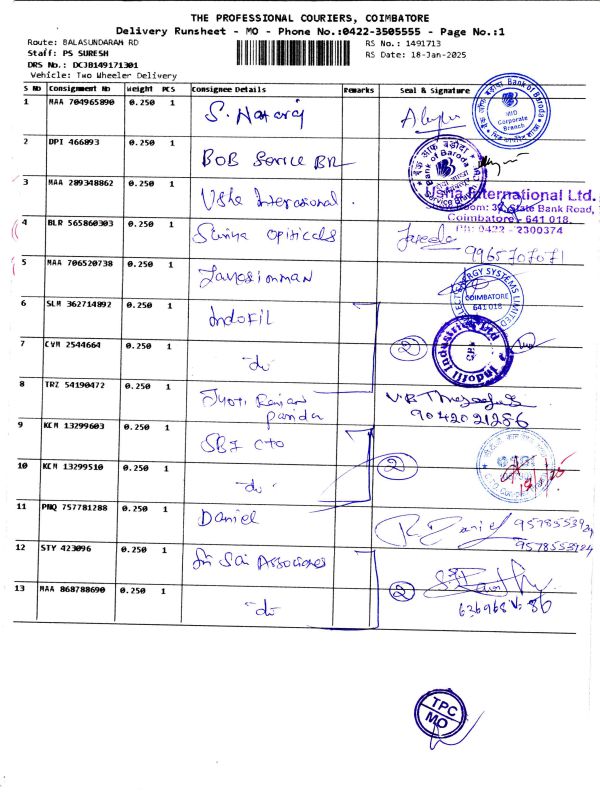 THE PROFESSIONAL COURIERS, COIMBATORE
Delivery Runsheet - MO - Phone No.:0422-3505555 - Page No.:1
Route: BALASUNDARAM RD
RS No.: 1491713
Staff: PS SURESH
RS Date: 18-Jan-2025
DRS No.: DCJB149171301
Vehicle: Two Wheeler Delivery
S No Consignment No Weight PCS Consignee Details Remarks Seal & Signature
1 MAA 704965890 0.250 1 S. Nataraj
Bank of Baroda
MID Corporate Branch
2 DPI 466893 0.250 1 BOB Service BR
Bank of Baroda
3 MAA 289348862 0.250 1 Usha International
Usha International Ltd.
State Bank Road,
Coimbatore - 641 018.
Ph: 0422 - 2300374
4 BLR 565860303 0.250 1 Suriya Opiticals
9965707071
5 MAA 706520738 0.250 1
ENERGY SYSTEMS LIMITED
COIMBATORE
641 018
6 SLM 362714892 0.250 1 Indofil
7 CVM 2544664 0.250 1 -do- 2
Indofil Industries Ltd
8 TRZ 54190472 0.250 1 Jyoti Ranjan Panida
9042021286
9 KCM 13299603 0.250 1 SBI CTO
10 KCM 13299510 0.250 1 -do- 2
11 PNQ 757781288 0.250 1 Daniel
R. Daniel 9578553924
9578553924
12 STY 423096 0.250 1 Sri Sai Associates
13 MAA 868788690 0.250 1 -do- 2
TPC
MO